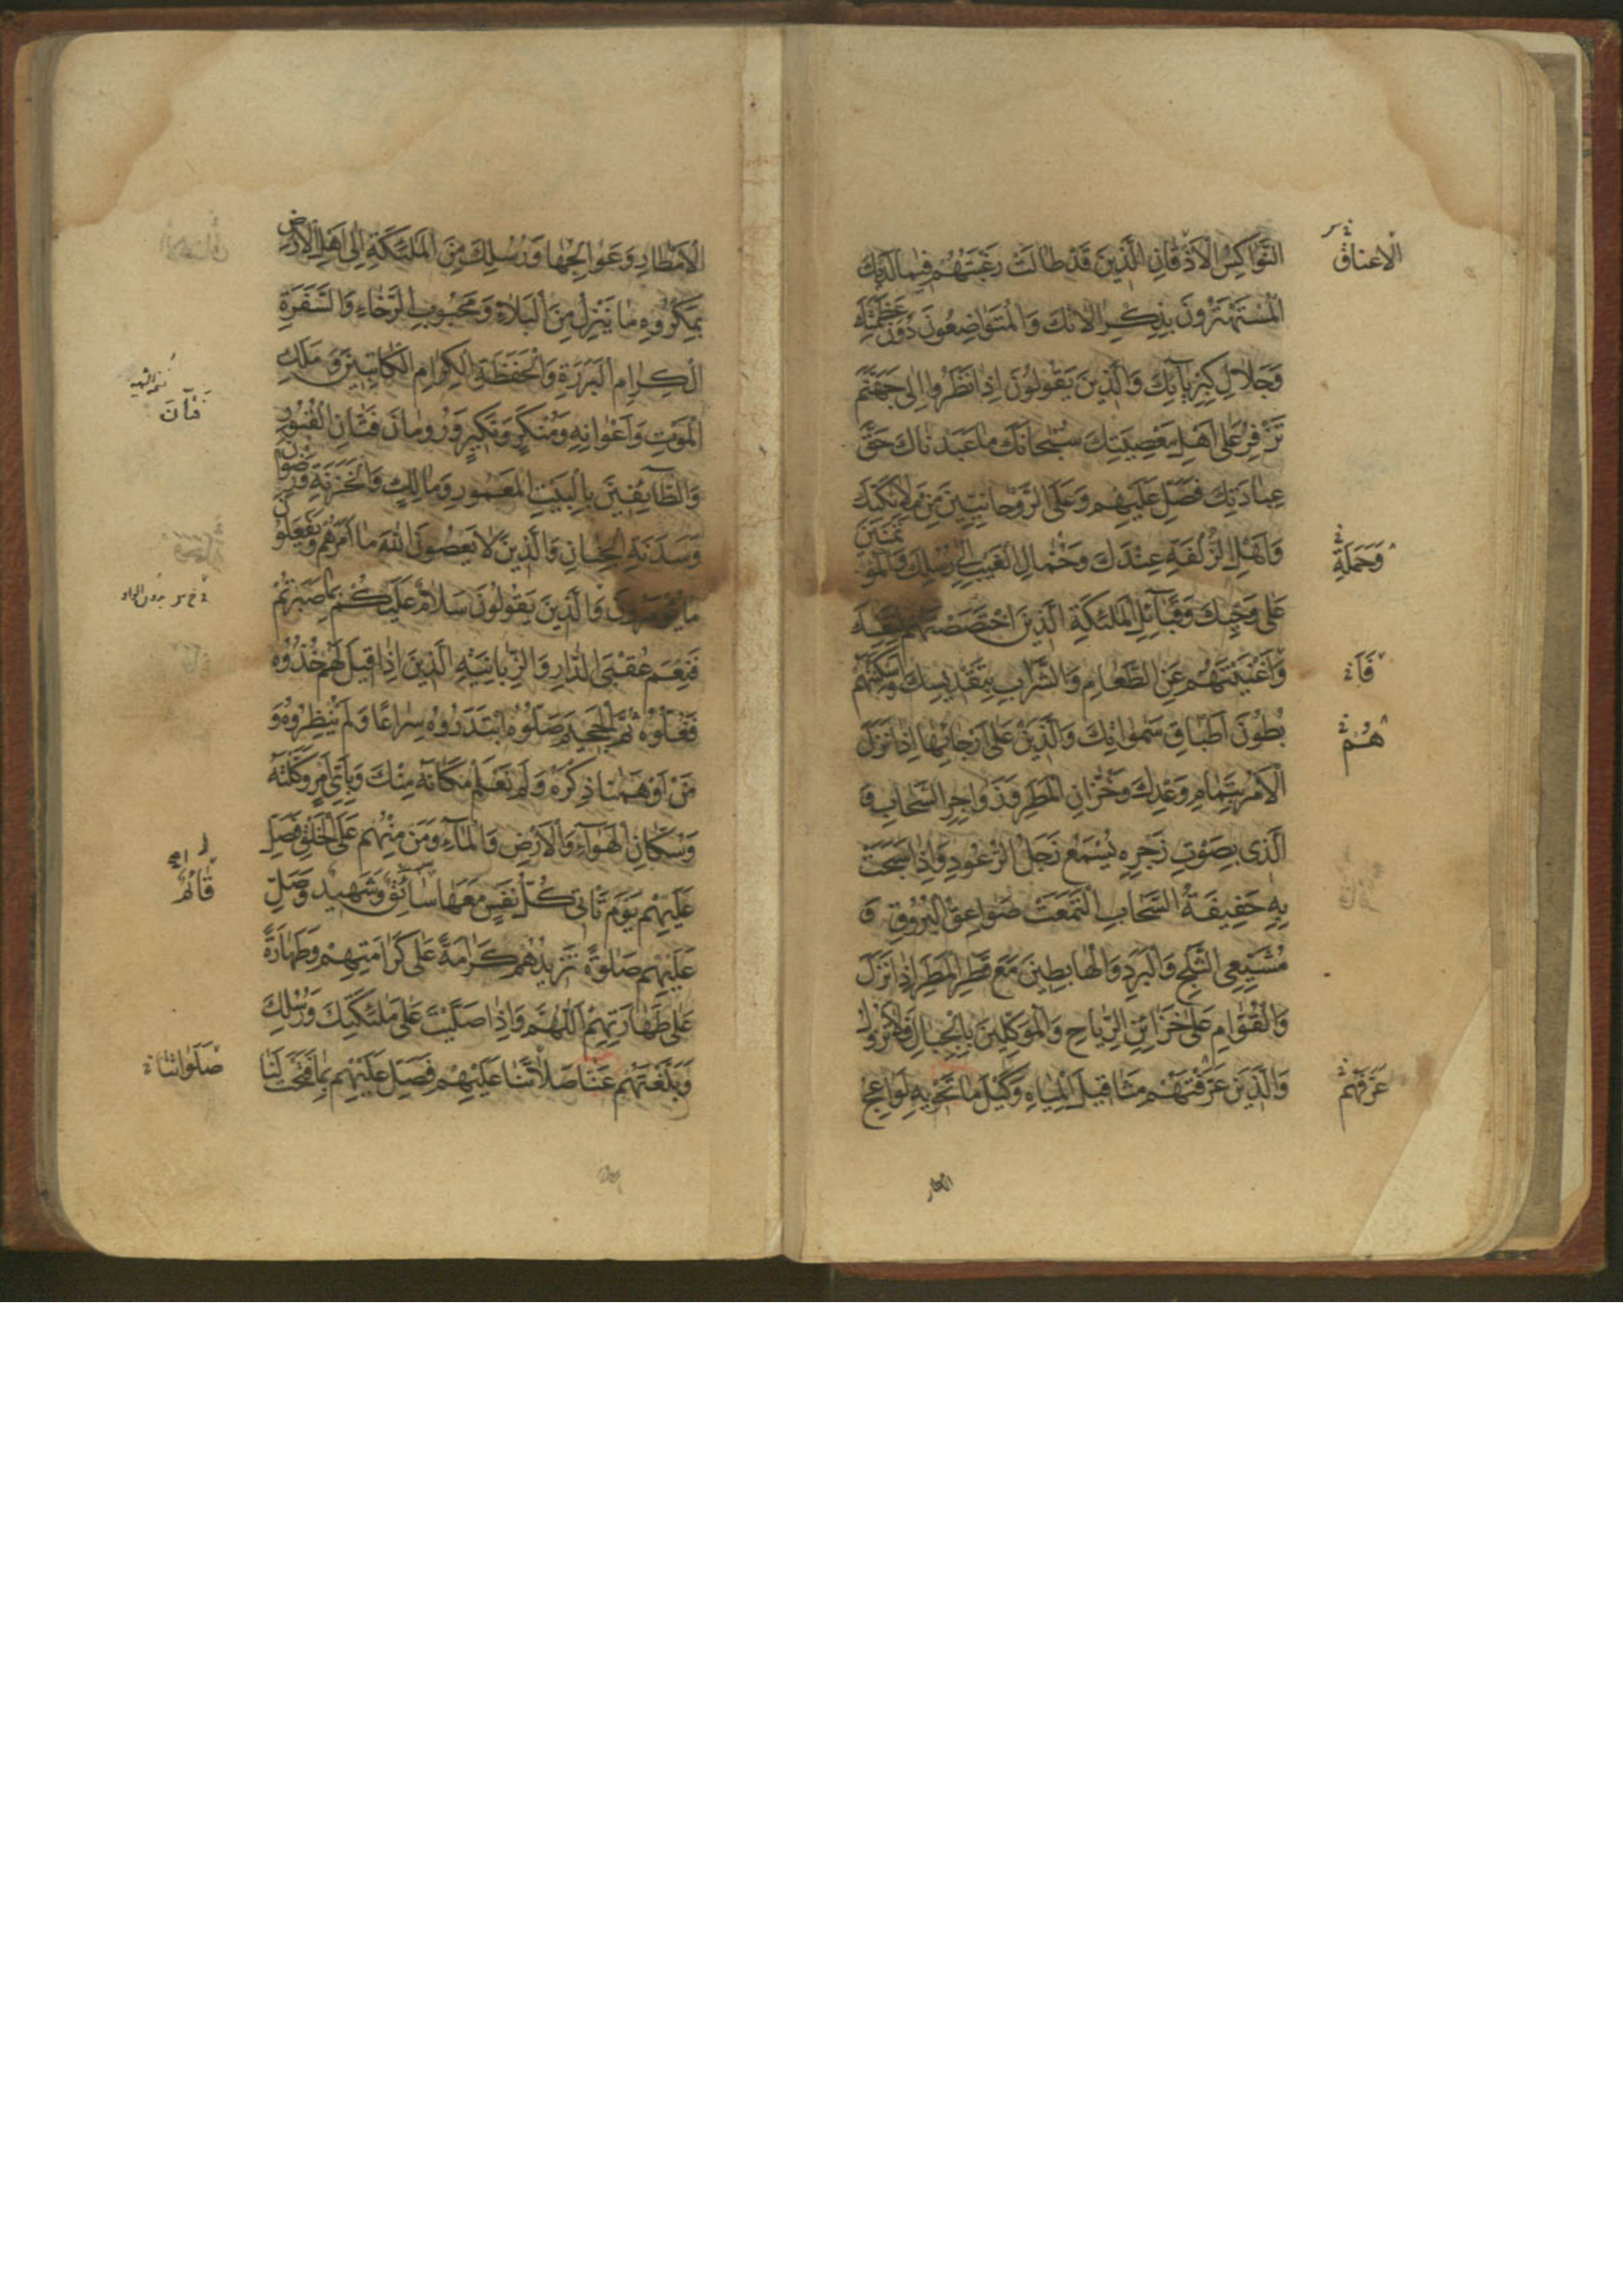 النَّوَاكِسُ الْاَذْقَانِ الَّذِينَ قَدْ طَالَتْ رَغْبَتُهُمْ فِيمَا لَدَيْكَ
الْمُسْتَهْتَرُونَ بِذِكْرِ الْاٰئِكَ وَالْمُتَوَاضِعُونَ دُونَ عَظَمَتِكَ
وَجَلَالِ كِبْرِيَآئِكَ وَالَّذِينَ يَقُولُونَ اِذَا نَظَرُوا اِلٰى جَهَنَّمَ
تَزْفِرُ عَلٰى اَهْلِ مَعْصِيَتِكَ سُبْحَانَكَ مَا عَبَدْنَاكَ حَقَّ
عِبَادَتِكَ فَصَلِّ عَلَيْهِمْ وَعَلَى الرَّوْحَانِيِّينَ مِنْ مَلَآئِكَتِكَ
وَاَهْلِ الزُّلْفَةِ عِنْدَكَ وَحُمَّالِ الْغَيْبِ اِلٰى رُسُلِكَ وَالْمُؤْتَمَنِينَ
عَلٰى وَحْيِكَ وَقَبَآئِلِ الْمَلٰئِكَةِ الَّذِينَ اخْتَصَصْتَهُمْ لِنَفْسِكَ
وَاَغْنَيْتَهُمْ عَنِ الطَّعَامِ وَالشَّرَابِ بِتَقْدِيسِكَ وَاَسْكَنْتَهُمْ
بُطُونَ اَطْبَاقِ سَمٰوَاتِكَ وَالَّذِينَ عَلٰى اَرْجَآئِهَا اِذَا نَزَلَ
الْاَمْرُ بِتَمَامِ وَعْدِكَ وَخُزَّانِ الْمَطَرِ وَزَوَاجِرِ السَّحَابِ وَ
الَّذِى بِصَوْتِ زَجْرِهِ يُسْمَعُ زَجَلُ الرُّعُودِ وَاِذَا سَبَحَتْ
بِهِ حَفِيفَةُ السَّحَابِ الْتَمَعَتْ صَوَاعِقُ الْبُرُوقِ وَ
مُشَيِّعِى الثَّلْجِ وَالْبَرَدِ وَالْهَابِطِينَ مَعَ قَطْرِ الْمَطَرِ اِذَا نَزَلَ
وَالْقُوَّامِ عَلٰى خَزَائِنِ الرِّيَاحِ وَالْمُوَكَّلِينَ بِالْجِبَالِ فَلَا تَزُولُ
وَالَّذِينَ عَرَّفْتَهُمْ مَثَاقِيلَ الْمِيَاهِ وَكَيْلَ مَا تَحْوِيهِ لَوَاعِجُ
الْاَعْنَاقُ
وَحَمَلَةِ
هُمْ
عَرَّفْتَهُمْ
الامطار
الْاَمْطَارِ وَعَوَالِجُهَا وَرُسُلِكَ مِنَ الْمَلٰئِكَةِ اِلٰى اَهْلِ الْاَرْضِ
بِمَكْرُوهِ مَا يَنْزِلُ مِنَ الْبَلَاءِ وَمَحْبُوبِ الرَّخَاءِ وَالسَّفَرَةِ
الْكِرَامِ الْبَرَرَةِ وَالْحَفَظَةِ الْكِرَامِ الْكَاتِبِينَ وَمَلَكِ
الْمَوْتِ وَاَعْوَانِهِ وَمُنْكَرٍ وَنَكِيرٍ وَرُومَانَ فَتَّانِ الْقُبُورِ
وَالطَّآئِفِينَ بِالْبَيْتِ الْمَعْمُورِ وَمَالِكٍ وَالْخَزَنَةِ وَرِضْوَانَ
وَسَدَنَةِ الْجِنَانِ وَالَّذِينَ لَا يَعْصُونَ اللّٰهَ مَا اَمَرَهُمْ وَيَفْعَلُونَ
مَا يُؤْمَرُونَ وَالَّذِينَ يَقُولُونَ سَلَامٌ عَلَيْكُمْ بِمَا صَبَرْتُمْ
فَنِعْمَ عُقْبَى الدَّارِ وَالزَّبَانِيَةِ الَّذِينَ اِذَا قِيلَ لَهُمْ خُذُوهُ
فَغُلُّوهُ ثُمَّ الْجَحِيمَ صَلُّوهُ ابْتَدَرُوهُ سِرَاعًا وَلَمْ يُنْظِرُوهُ وَ
مَنْ اَوْهَمْنَا ذِكْرَهُ وَلَمْ نَعْلَمْ مَكَانَهُ مِنْكَ وَبِاَىِّ اَمْرٍ وَكَّلْتَهُ
وَسُكَّانِ الْهَوَآءِ وَالْاَرْضِ وَالْمَآءِ وَمَنْ مِنْهُمْ عَلَى الْخَلْقِ فَصَلِّ
عَلَيْهِمْ يَوْمَ تَأْتِى كُلُّ نَفْسٍ مَعَهَا سَائِقٌ وَشَهِيدٌ وَصَلِّ
عَلَيْهِمْ صَلٰوةً تَزِيدُهُمْ كَرَامَةً عَلٰى كَرَامَتِهِمْ وَطَهَارَةً
عَلٰى طَهَارَتِهِمْ اَللّٰهُمَّ وَاِذَا صَلَّيْتَ عَلٰى مَلٰئِكَتِكَ وَرُسُلِكَ
وَبَلَّغْتَهُمْ عَنَّا صَلَاتَنَا عَلَيْهِمْ فَصَلِّ عَلَيْهِمْ بِمَا فَتَحْتَ لَنَا
فَتَّانَ
بدون الواو
قَائِمٌ
صَلَوَاتَنَا